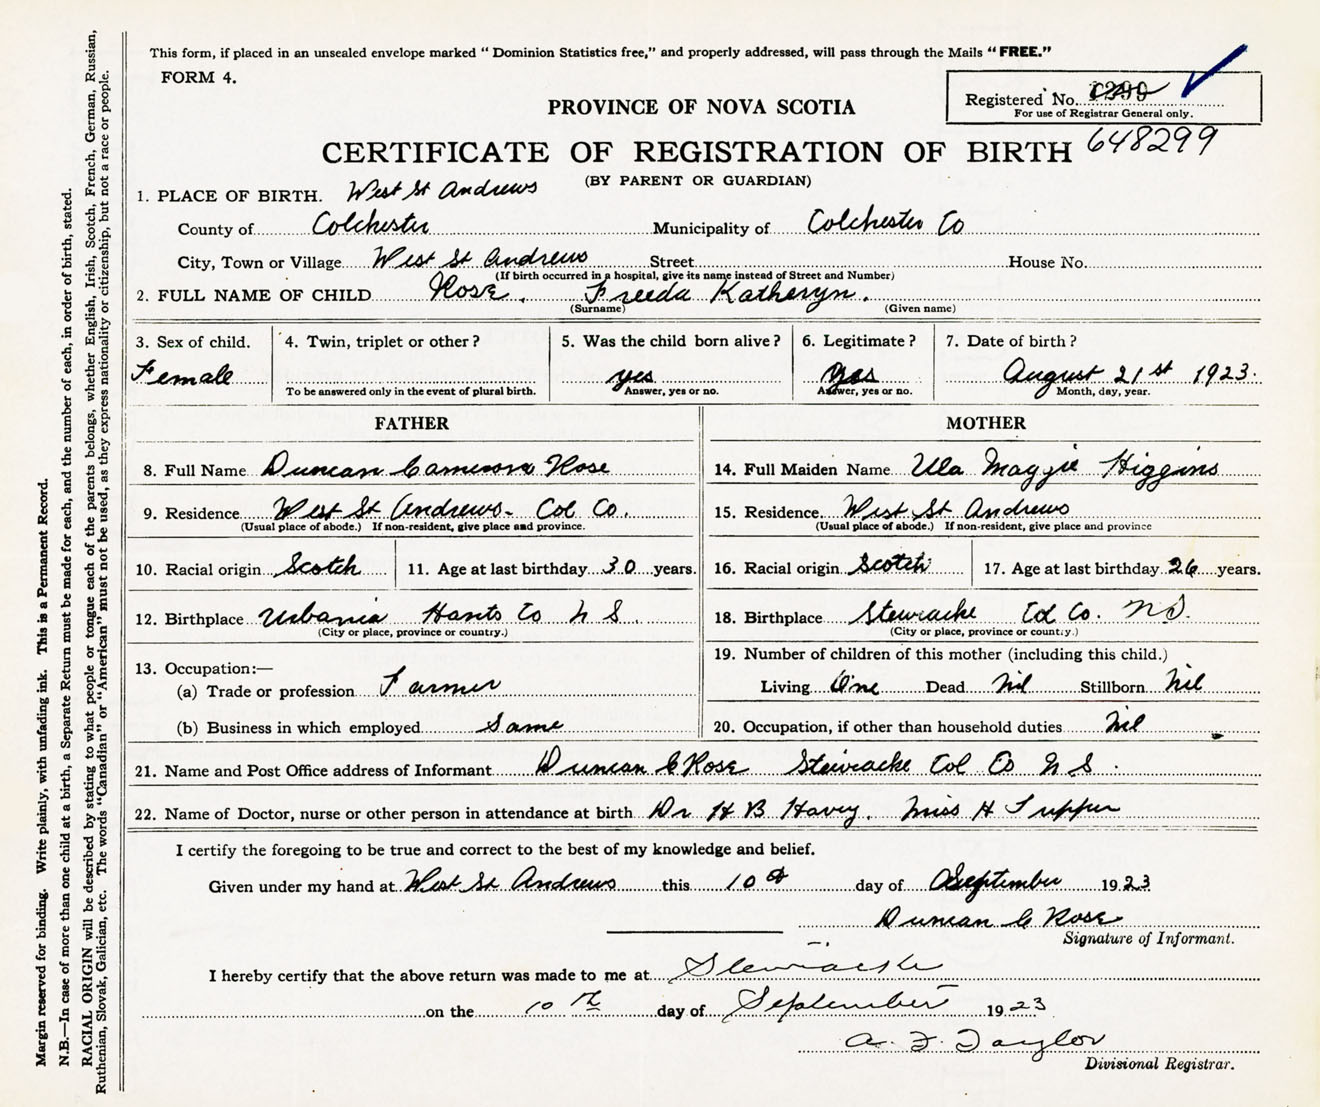 This form, if placed in an unsealed envelope marked " Dominion Statistics free," and properly addressed, will pass through the Mails " FREE."
FORM 4.
Registered No.
For use of Registrar General only.
PROVINCE OF NOVA SCOTIA
648299
CERTIFICATE OF REGISTRATION OF BIRTH
(BY PARENT OR GUARDIAN)
1. PLACE OF BIRTH. West St Andrews
County of Colchester Municipality of Colchester Co
City, Town or Village West St Andrews Street House No.
(If birth occurred in a hospital, give its name instead of Street and Number)
2. FULL NAME OF CHILD Rose. Freeda Katheryn.
(Surname) (Given name)
3. Sex of child. 4. Twin, triplet or other? 5. Was the child born alive? 6. Legitimate? 7. Date of birth?
Female yes yes August 21st 1923.
To be answered only in the event of plural birth. Answer, yes or no. Answer, yes or no. Month, day, year.
FATHER MOTHER
8. Full Name Duncan Cameron Rose 14. Full Maiden Name Ula Maggie Higgins
9. Residence West St Andrews- Col Co. 15. Residence West St Andrews
(Usual place of abode.) If non-resident, give place and province. (Usual place of abode.) If non-resident, give place and province
10. Racial origin Scotch 11. Age at last birthday 30 years. 16. Racial origin Scotch 17. Age at last birthday 26 years.
12. Birthplace Urbania Hants Co N S. 18. Birthplace Stewiacke Col Co. N.S.
(City or place, province or country.) (City or place, province or country.)
13. Occupation:— 19. Number of children of this mother (including this child.)
(a) Trade or profession Farmer Living One Dead Nil Stillborn Nil
(b) Business in which employed Same 20. Occupation, if other than household duties Nil
21. Name and Post Office address of Informant Duncan C Rose Stewiacke Col Co N S.
22. Name of Doctor, nurse or other person in attendance at birth Dr H B Havey. Miss H Tupper
I certify the foregoing to be true and correct to the best of my knowledge and belief.
Given under my hand at West St Andrews this 10th day of September 1923
Duncan C Rose
Signature of Informant.
I hereby certify that the above return was made to me at Stewiacke
on the 10th day of September 1923
A. F. Taylor
Divisional Registrar.
Margin reserved for binding. Write plainly, with unfading ink. This is a Permanent Record.
N.B.—In case of more than one child at a birth, a Separate Return must be made for each, and the number of each, in order of birth, stated.
RACIAL ORIGIN will be described by stating to what people or tongue each of the parents belongs, whether English, Irish, Scotch, French, German, Russian,
Ruthenian, Slovak, Galician, etc. The words "Canadian" or "American" must not be used, as they express nationality or citizenship, but not a race or people.